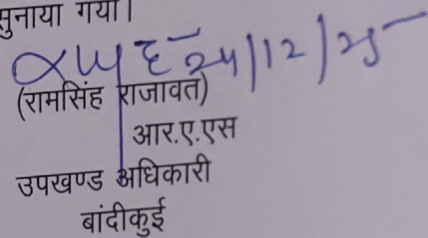 सुनाया गया।
24/12/25
(रामसिंह राजावत)
आर.ए.एस
उपखण्ड अधिकारी
बांदीकुई